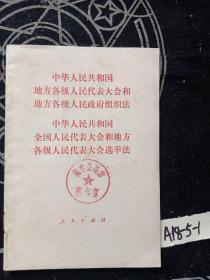 中华人民共和国
地方各级人民代表大会和
地方各级人民政府组织法
中华人民共和国
全国人民代表大会和地方
各级人民代表大会选举法
人民出版社
A18-5-1